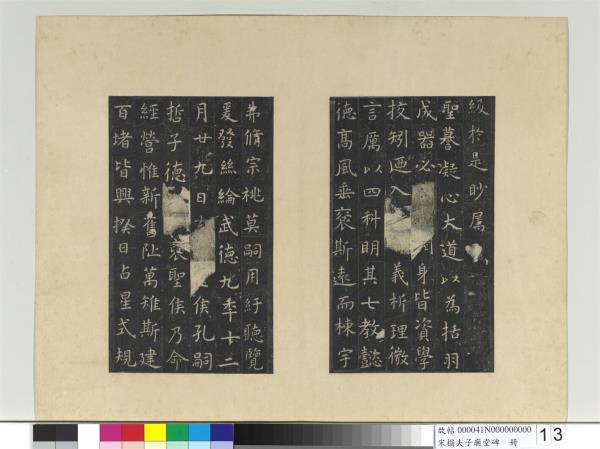 級於是眇屬
聖謩凝心大道以為括羽
成器必 身皆資學
技矧迺入 義析理微
言厲以四科明其七教懿
德髙風垂裒斯遠而棟宇
弗脩宗祧莫嗣用紆聽覽
爰發絲綸武德九年十二
月廿九日 侯孔嗣
哲子德 襃聖侯乃命
經營惟新舊阯萬雉斯建
百堵皆興揆日占星式規
故帖 000041N000000000
宋搨夫子廟堂碑 冊
13